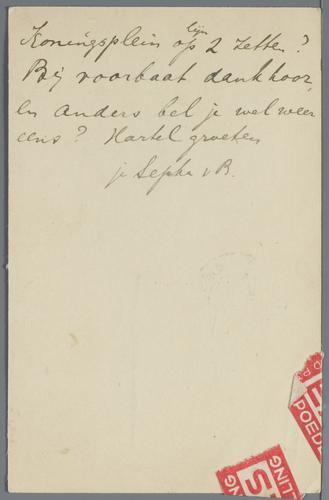 Koningsplein op lijn 2 zetten?
Bij voorbaat dank hoor,
en anders bel je wel weer
eens? Hartel groeten
je Sepha v B.
POED
LING
S